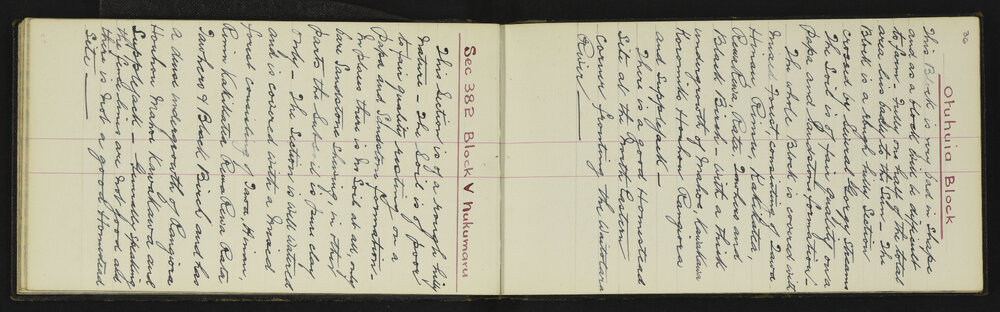 36
Otuhuia Block
This Block is very bad in Shape
and as a block will be difficult
to farm - Fully one half of the total
area lies badly to the Sun - The
Block is a rough hilly Section
crossed by several streams
The Soil is of fair quality on a
papa and Sandstone formation -
The whole Block is covered with
mixed forest, consisting of Tawa
Hinau, Rimu, Kahikatea,
Rewa Rewa, Rata Tawhero and
Black Birch - with a thick
undergrowth of Mahoe, Kawakawa
Koromiko Horohoro Rangiora
and Supplejack -
There is a good Homestead
Site at the North Eastern
corner fronting the Waitotara
River
Sec 382 Block V Nukumaru
This Section is of a rough hilly
nature - The Soil is of poor
to fair quality resting on a
papa and Sandstone formation -
In places there is no Soil at all, only
bare Sandstone showing, in other
parts the Sub-soil is pure clay
only - The Section is well watered
and is covered with a mixed
forest consisting of Tawa, Hinau,
Rimu Kahikatea Rewa Rewa Rata
Tawhero & Black Birch and has
a dense undergrowth of Rangiora
Horohoro Mahoe Kawakawa and
Supplejack - Generally speaking
the Gradients are not good and
there is not a good Homestead
Site -